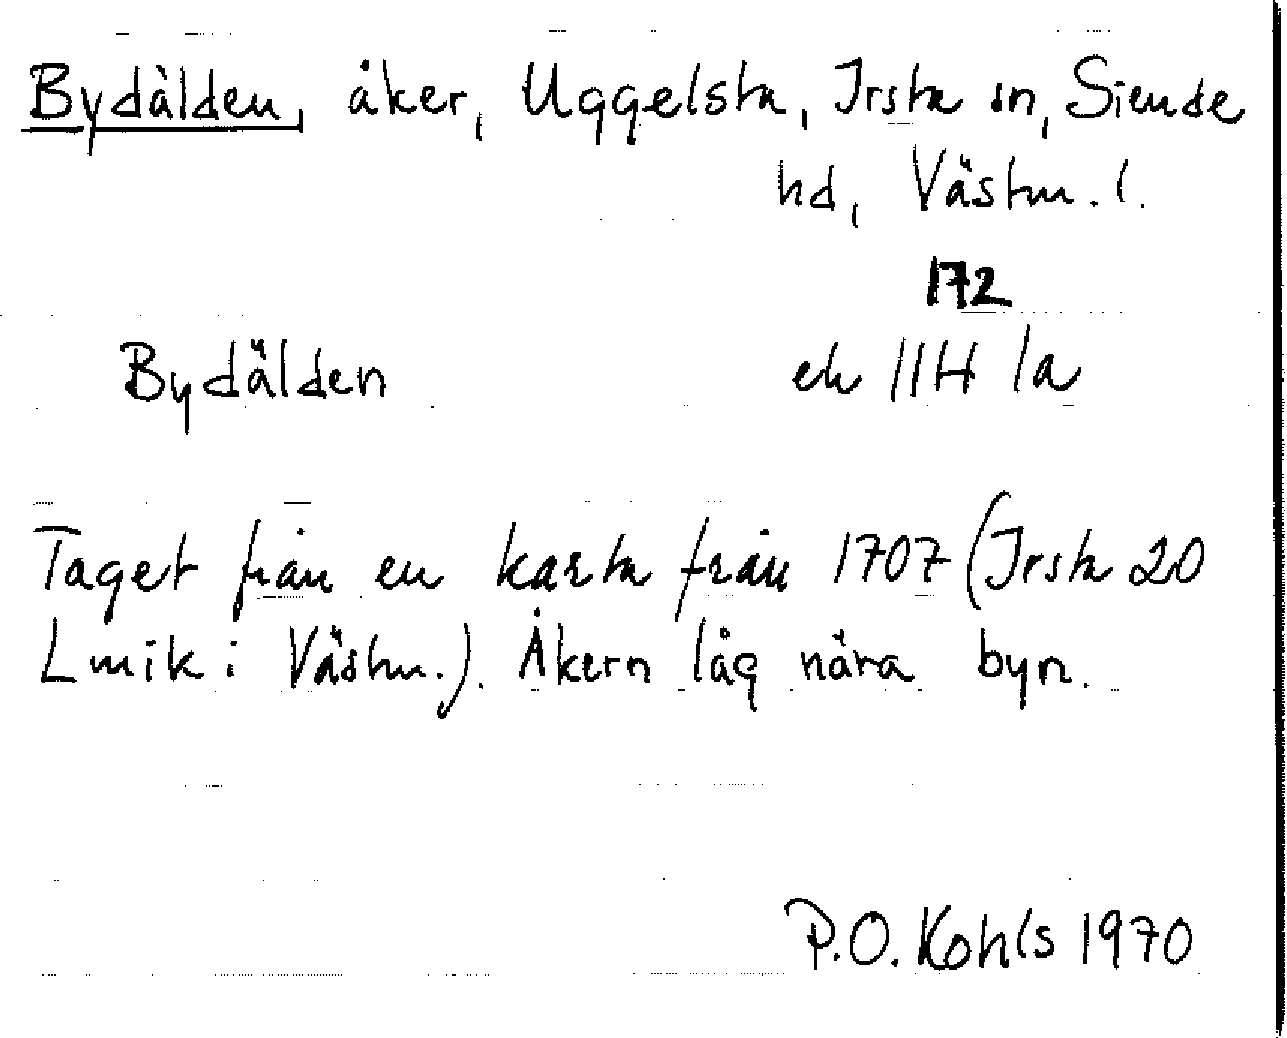 Bydälden, åker, Uggelsta, Irsta sn, Siende
hd, Västm. l.
172
Bydälden ek 11H 1a
Taget från en karta från 1707 (Irsta 20
Lmik i Västm.). Åkern låg nära byn.
P.O. Kohls 1970